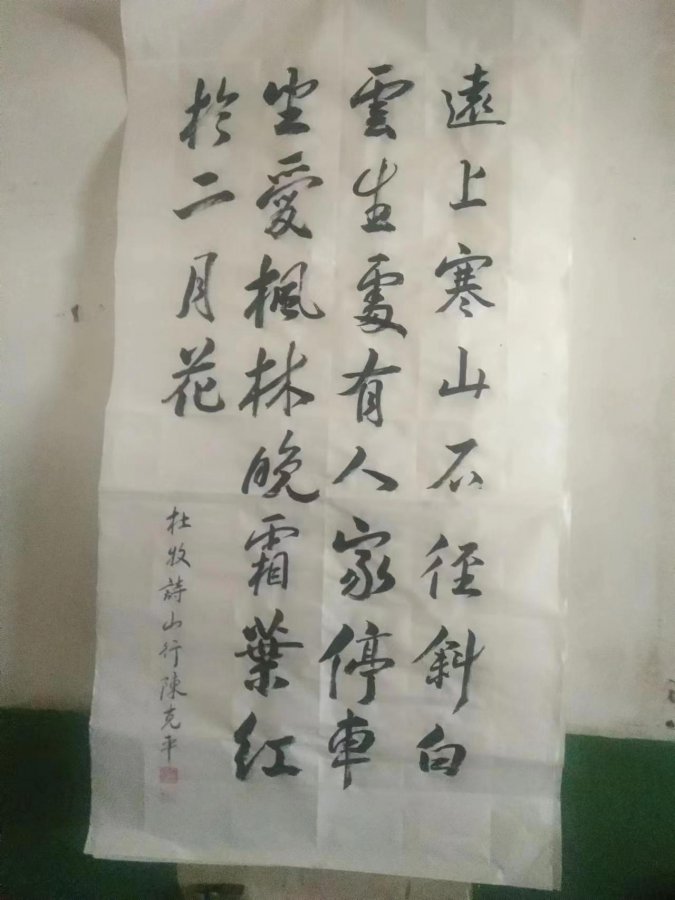 遠上寒山石径斜白
雲生處有人家停車
坐愛楓林晚霜葉紅
於二月花
杜牧詩山行陳克平